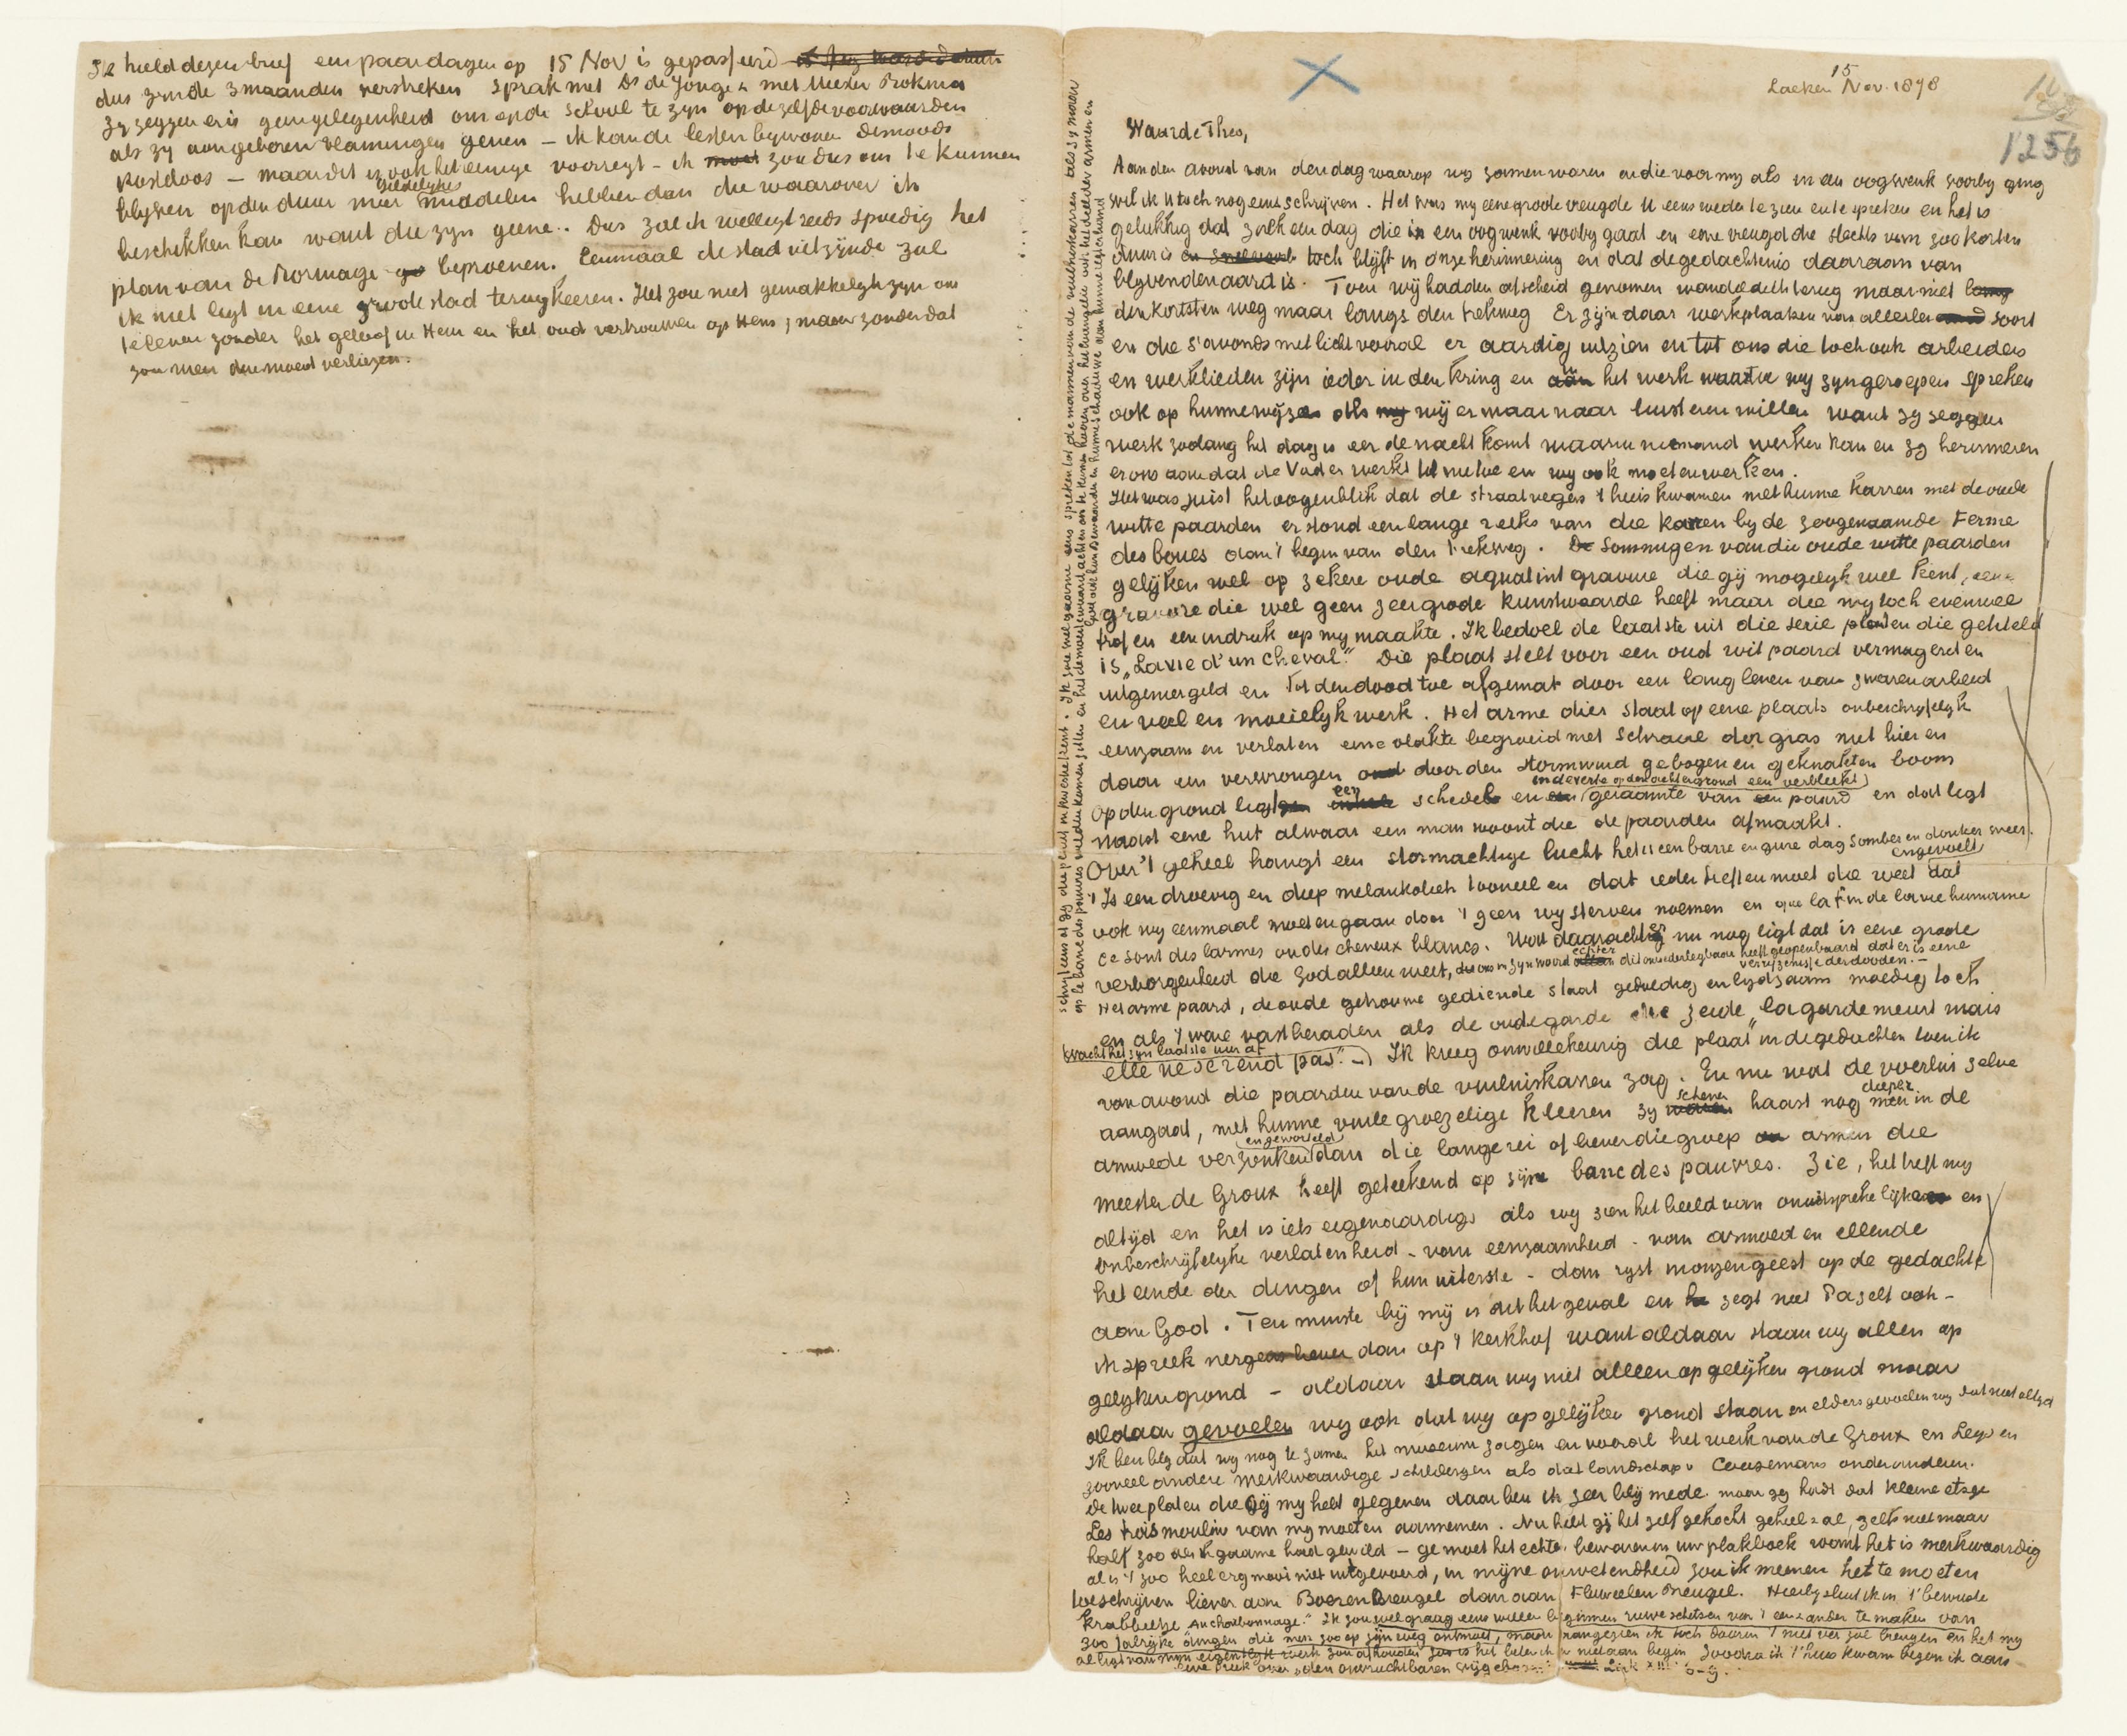 Ik hield dezen brief een paar dagen op 15 Nov is gepasseerd
dus zynde 3 maanden verstreken sprak met Ds de Jonge & met Meester Bokma
zy zeggen er is geen gelegenheid om op de school te zyn op dezelfde voorwaarden
als zy aan geboren Vlamingen geven – ik kan de lessen bywonen desnoods
kosteloos – maar dit is ook het eenige voorregt – ik zou dus om te kunnen
blyven op den duur meer geldelykes middelen hebben dan die waarover ik
beschikken kan want die zyn geene. Dus zal ik welligt reeds spoedig het
plan van de Borinage beproeven. Eenmaal de stad uit zynde zal
ik niet ligt in eene groote stad terugkeeren. Het zou niet gemakkelyk zyn om
te leven zonder het geloof in Hem en het oud vertrouwen op Hem; maar zonder dat
zou men den moed verliezen.
Laeken 15 Nov. 1878
1256
Waarde Theo,
Aan den avond van den dag waarop wy zamen waren en die voor my als in een oogwenk voorby ging
wil ik U toch nog eens schrijven. Het was my eene groote vreugde U eens weder te zien en te spreken en het is
gelukkig dat zulk een dag die in een oogwenk voorby gaat en eene vreugd die slechts van zoo korten
duur is toch blijft in onze herinnering en dat de gedachtenis daaraan van
blyvenden aard is. Toen wij hadden afscheid genomen wandelde ik terug maar niet
den kortsten weg maar langs den trekweg Er zijn daar werkplaatsen van allerlei soort
en die s'avonds met licht vooral er aardig uitzien en tot ons die toch ook arbeiders
en werklieden zijn ieder in den kring en in het werk waartoe wy zyn geroepen spreken
ook op hunne wijze als wij er maar naar luisteren willen want zy zeggen
werk zoolang het dag is eer de nacht komt waarin niemand werken kan en zy herinneren
er ons aan dat de Vader werkt tot nu toe en wy ook moeten werken.
Het was juist het oogenblik dat de straatvegers t'huis kwamen met hunne karren met de oude
witte paarden er stond een lange reeks van die karren by de zoogenaamde Ferme
des boues aan 't begin van den trekweg. Sommigen van die oude witte paarden
gelijken wel op zekere oude aquatint gravure die gij mogelyk wel kent, eene
gravure die wel geen zeer groote kunstwaarde heeft maar die my toch evenwel
trof en een indruk op my maakte. Ik bedoel de laatste uit die serie platen die getiteld
is „La vie d'un cheval". Die plaat stelt voor een oud wit paard vermagerd en
uitgemergeld en tot den dood toe afgemat door een lang leven van zwaren arbeid
en veel en moeielyk werk. Het arme dier staat op eene plaats onbeschryfelyk
eenzaam en verlaten eene vlakte begroeid met schraal dor gras met hier en
daar een verwrongen door den stormwind gebogen en geknakten boom
Op den grond ligt een schedel en in de verte op den achtergrond een verbleekt geraamte van een paard en dat ligt
naast eene hut alwaar een man woont die de paarden afmaakt.
Over 't geheel hangt een stormachtige lucht het is een barre en gure dag somber en donker weer.
't Is een droevig en diep melankoliek tooneel en dat ieder treffen moet die weet en gevoelt dat
ook wy eenmaal moeten gaan door 't geen wy sterven noemen en que la fin de la vie humaine
ce sont des larmes ou des cheveux blancs. Wat daarachter nu nog ligt dat is eene groote
verborgenheid die God alleen weet, die ons in zyn woord echter dit onwederlegbaar heeft geopenbaard dat er is eene verryzenisse der dooden. –
Het arme paard, de oude getrouwe gediende staat geduldig en lydzaam moedig toch
en als 't ware vastberaden als de oude garde die zeide „la garde meurt mais
elle ne se rend pas". – wacht het zyn laatste uur af Ik kreeg onwillekeurig die plaat in de gedachten toen ik
van avond die paarden van de vuilniskarren zag. En nu wat de voerlui zelve
aangaat, met hunne vuile groezelige kleeren zy schenen haast nog dieper in de
armoede verzonken en geworteld dan die lange rei of liever die groep armen die
meester de Groux heeft geteekend op zijn banc des pauvres. Zie, het treft my
altijd en het is iets eigenaardigs als wy zien het beeld van onuitsprekelijke en
onbeschrijfelyke verlatenheid – van eenzaamheid – van armoed en ellende
het einde der dingen of hun uiterste – dan ryst in onzen geest op de gedachte
aan God. Ten minste bij mij is dit het geval en zegt niet Pa zelf ook –
ik spreek nergens liever dan op 't kerkhof want aldaar staan wy allen op
gelyken grond – aldaar staan wy niet alleen op gelijken grond maar
aldaar gevoelen wy ook dat wy op gelijken grond staan en elders gevoelen wy dat niet altyd
Ik ben bly dat wy nog te zamen het museum zagen en vooral het werk van de Groux en Leys en
zooveel andere merkwaardige schilderyen als dat landschap v Coosemans onder anderen.
De twee platen die Gij my hebt gegeven daar ben ik zeer blij mede maar gy hadt dat kleine etsje
Les trois moulins van my moeten aannemen. Nu hebt gij het zelf gekocht geheel & al, zelfs niet maar
half zoo als ik gaarne had gewild – ge moet het echter bewaren in uw plakboek want het is merkwaardig
al is 't zoo heel erg mooi niet uitgevoerd, in mijne onwetendheid zou ik meenen het te moeten
toeschrijven liever aan Boeren Breugel dan aan Fluweelen Breugel. Hierby sluit ik in 't bewuste
krabbeltje „Au charbonnage". Ik zou wel graag eens willen beginnen ruwe schetsen van 't een & ander te maken van
zoo talrijke dingen die men zoo op zijn weg ontmoet, maar aangezien ik toch daarin 't niet ver zou brengen en het my
al ligt van myn eigentlyk werk zou afhouden is het beter ik er niet aan begin. Zoodra ik t'huis kwam begon ik aan
eene preek over „den onvruchtbaren vijgeboom" Luk. XIII: 6–9.
Schryf eens als gy die pen uit in uw eskesfrent